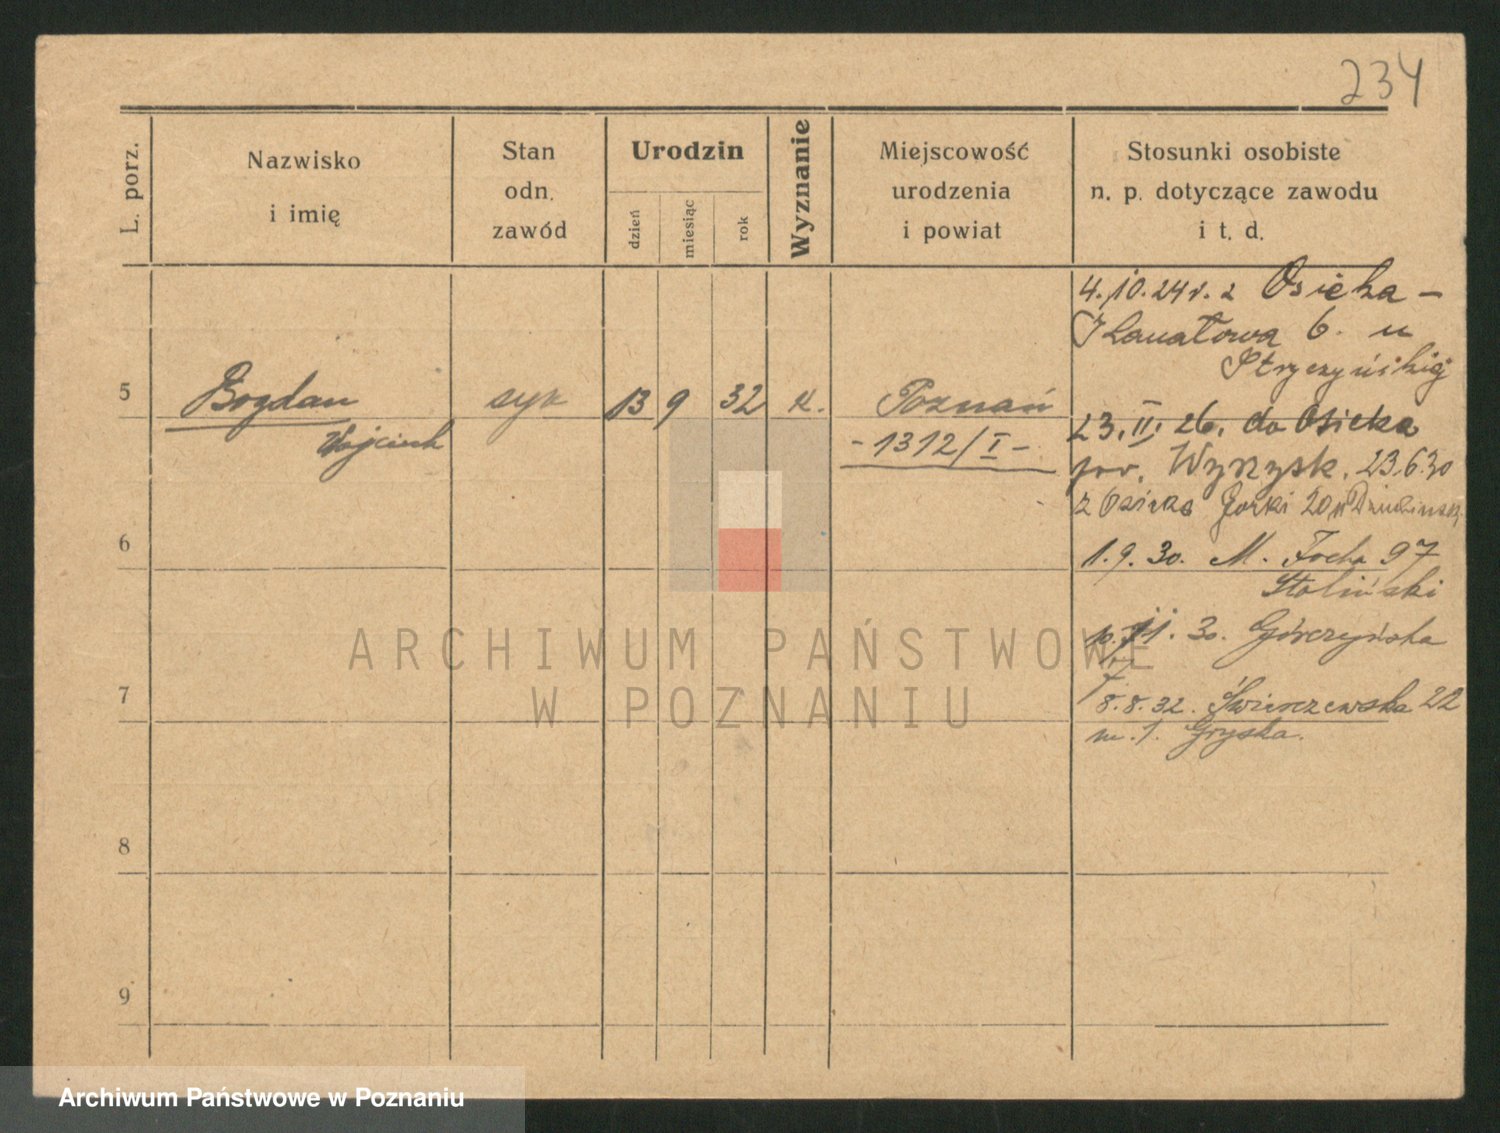 234
L. porz.
Nazwisko
i imię
Stan
odn.
zawód
Urodzin
dzień
miesiąc
rok
Wyznanie
Miejscowość
urodzenia
i powiat
Stosunki osobiste
n. p. dotyczące zawodu
i t. d.
4.10.24r. z Osieka -
6. u
Strzyżyńskiej
5
Bogdan
syn
13 9 32 k.
Poznań
Wojciech
- 1312/I -
23. II. 26. do Osieka
pow. Wyrzysk. 23.6.30
z Osieka Górki 20
6
1.9.30. M. Focha 97
Stoliński
11. 30. Górczyńska
7
8.8.32. Świerczewska 22
m. 1. Gryska.
8
9
ARCHIWUM PAŃSTWOWE
W POZNANIU
Archiwum Państwowe w Poznaniu